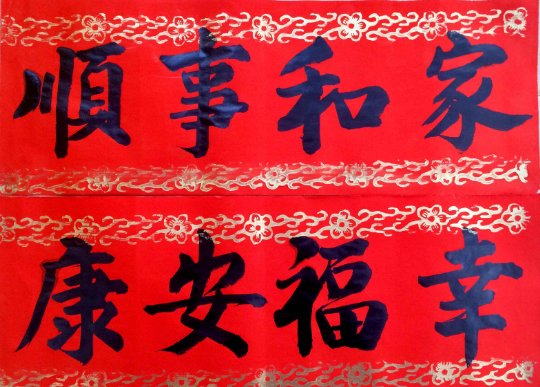 家和事順
幸福安康